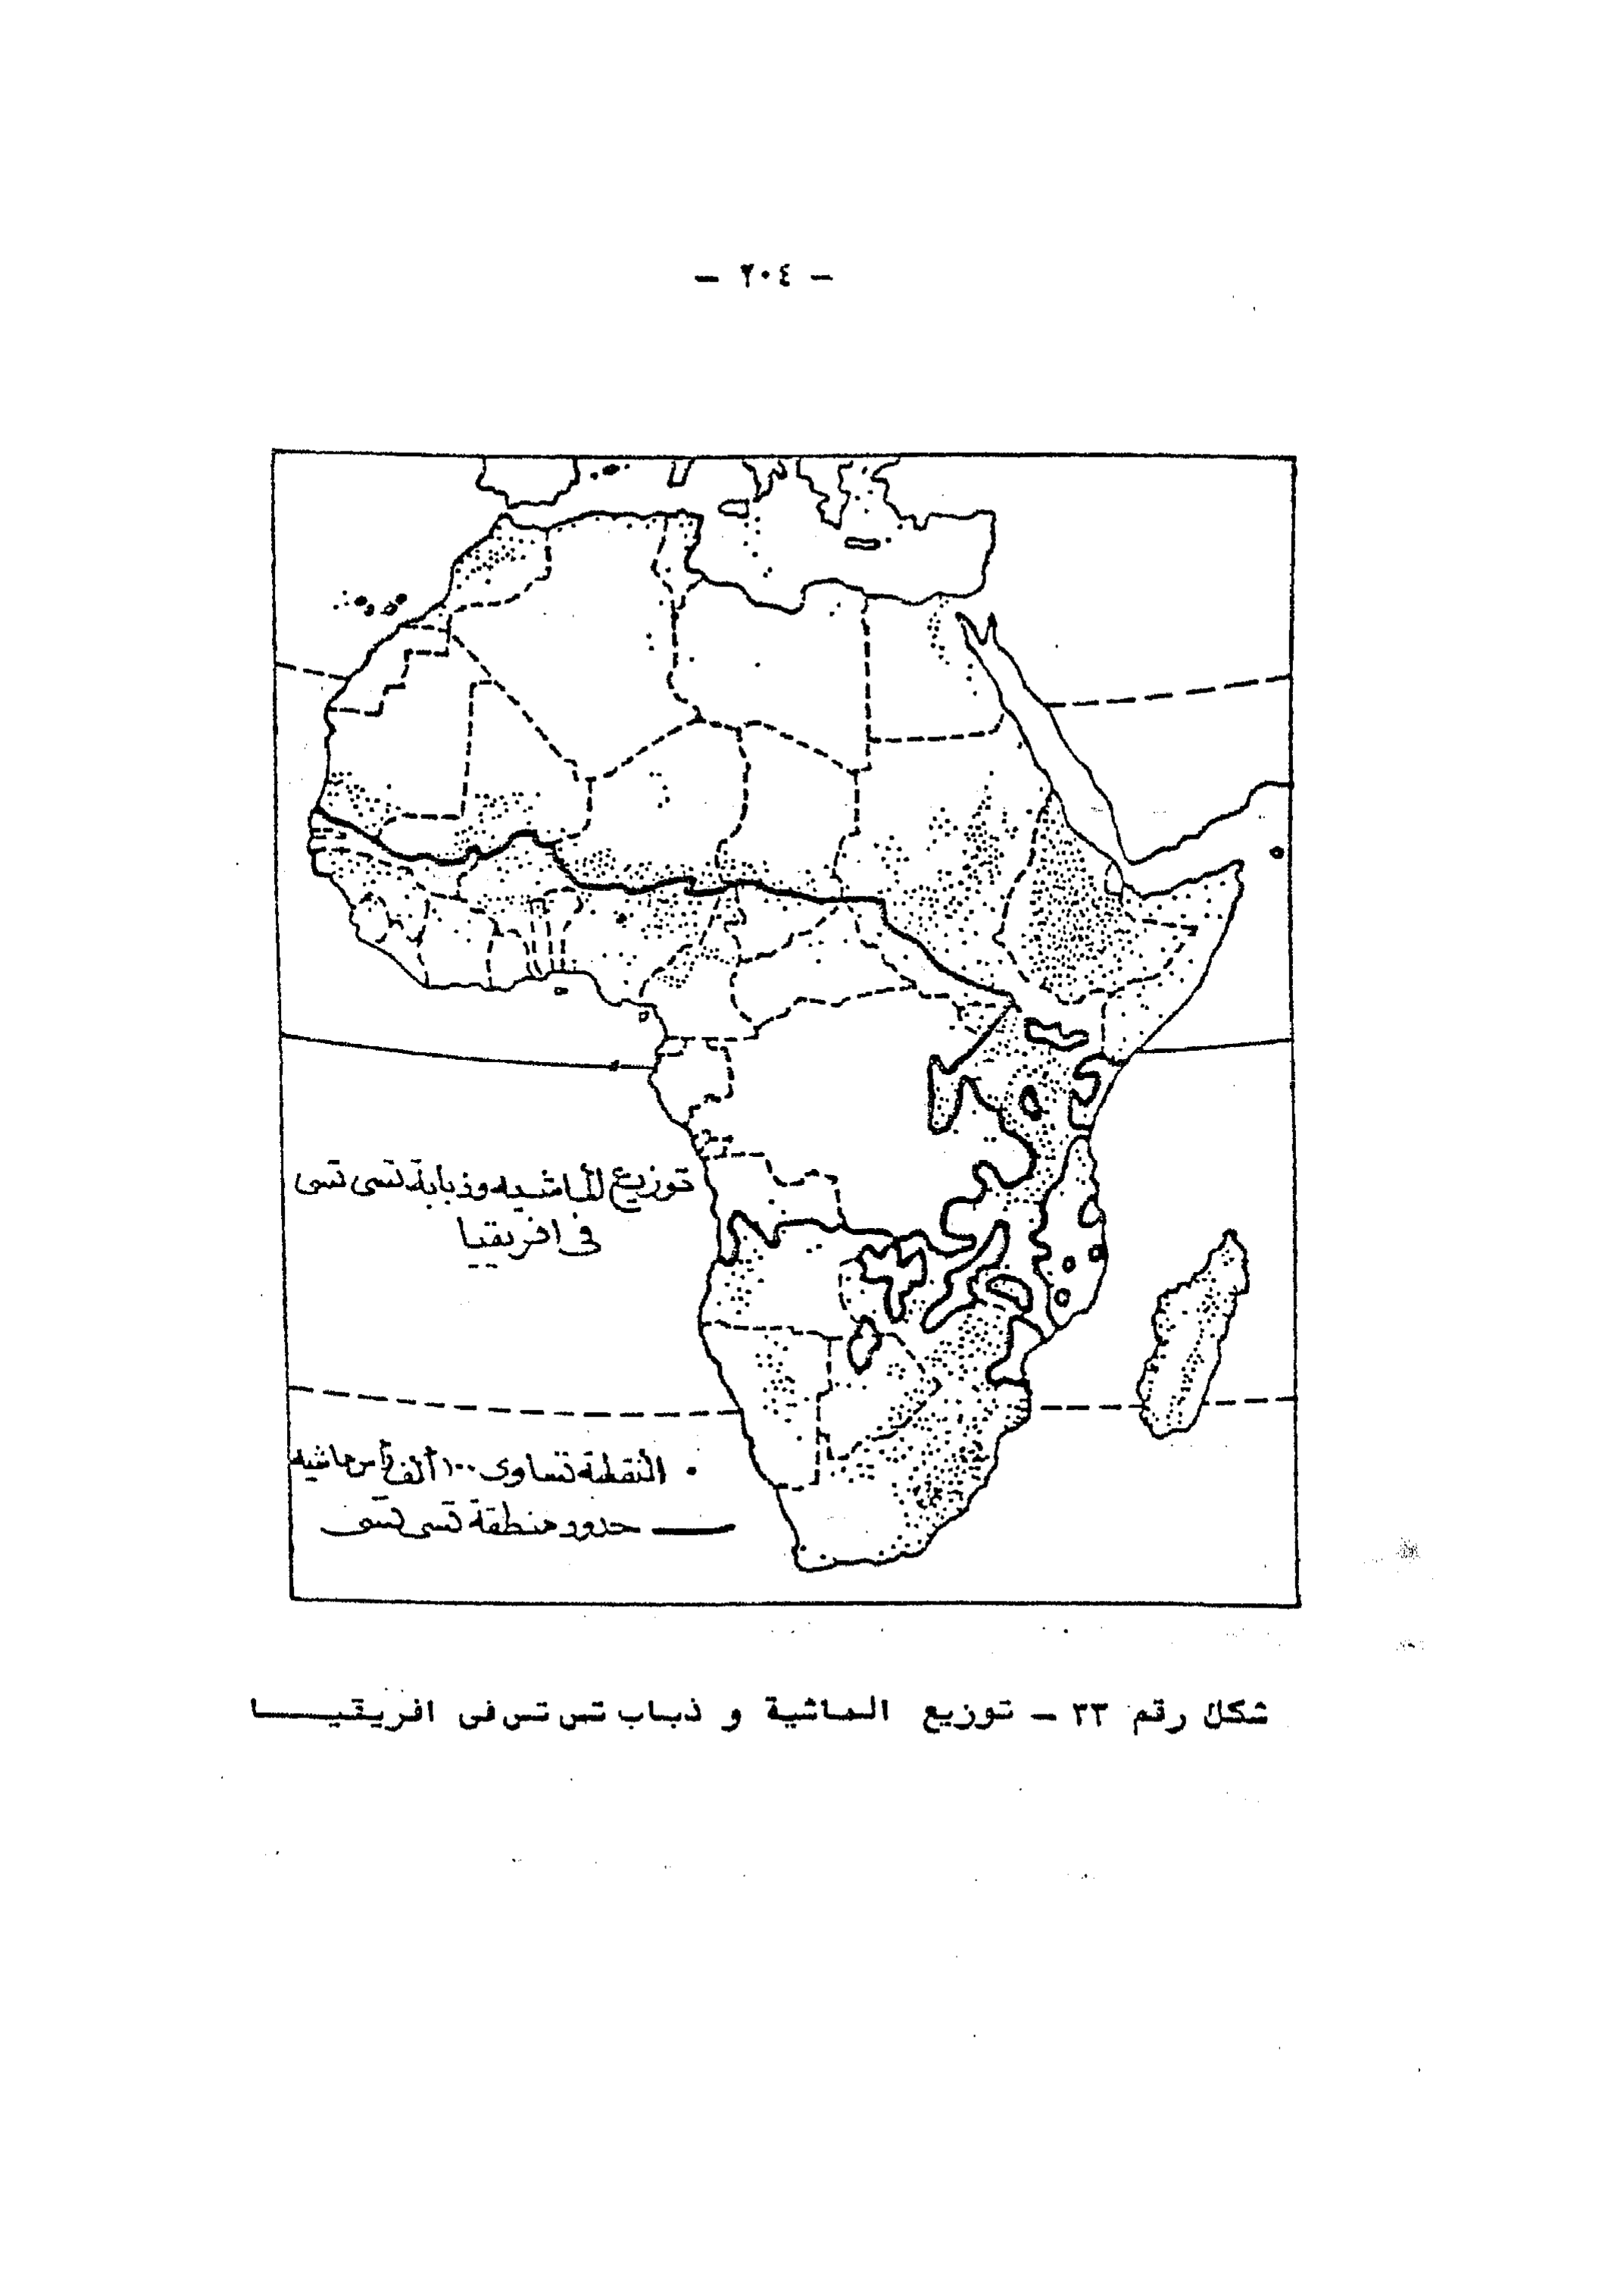 — ٢٠٤ —
توزيع الماشيه وذبابة تسى تسى
فى افريقيا
• النقطة تساوى ١٠٠ ألف رأس ماشيه
—— حدود منطقة تسى تسى
شكل رقم ٣٣ — توزيع الماشية و ذباب تس تس فى افريقيـــــا